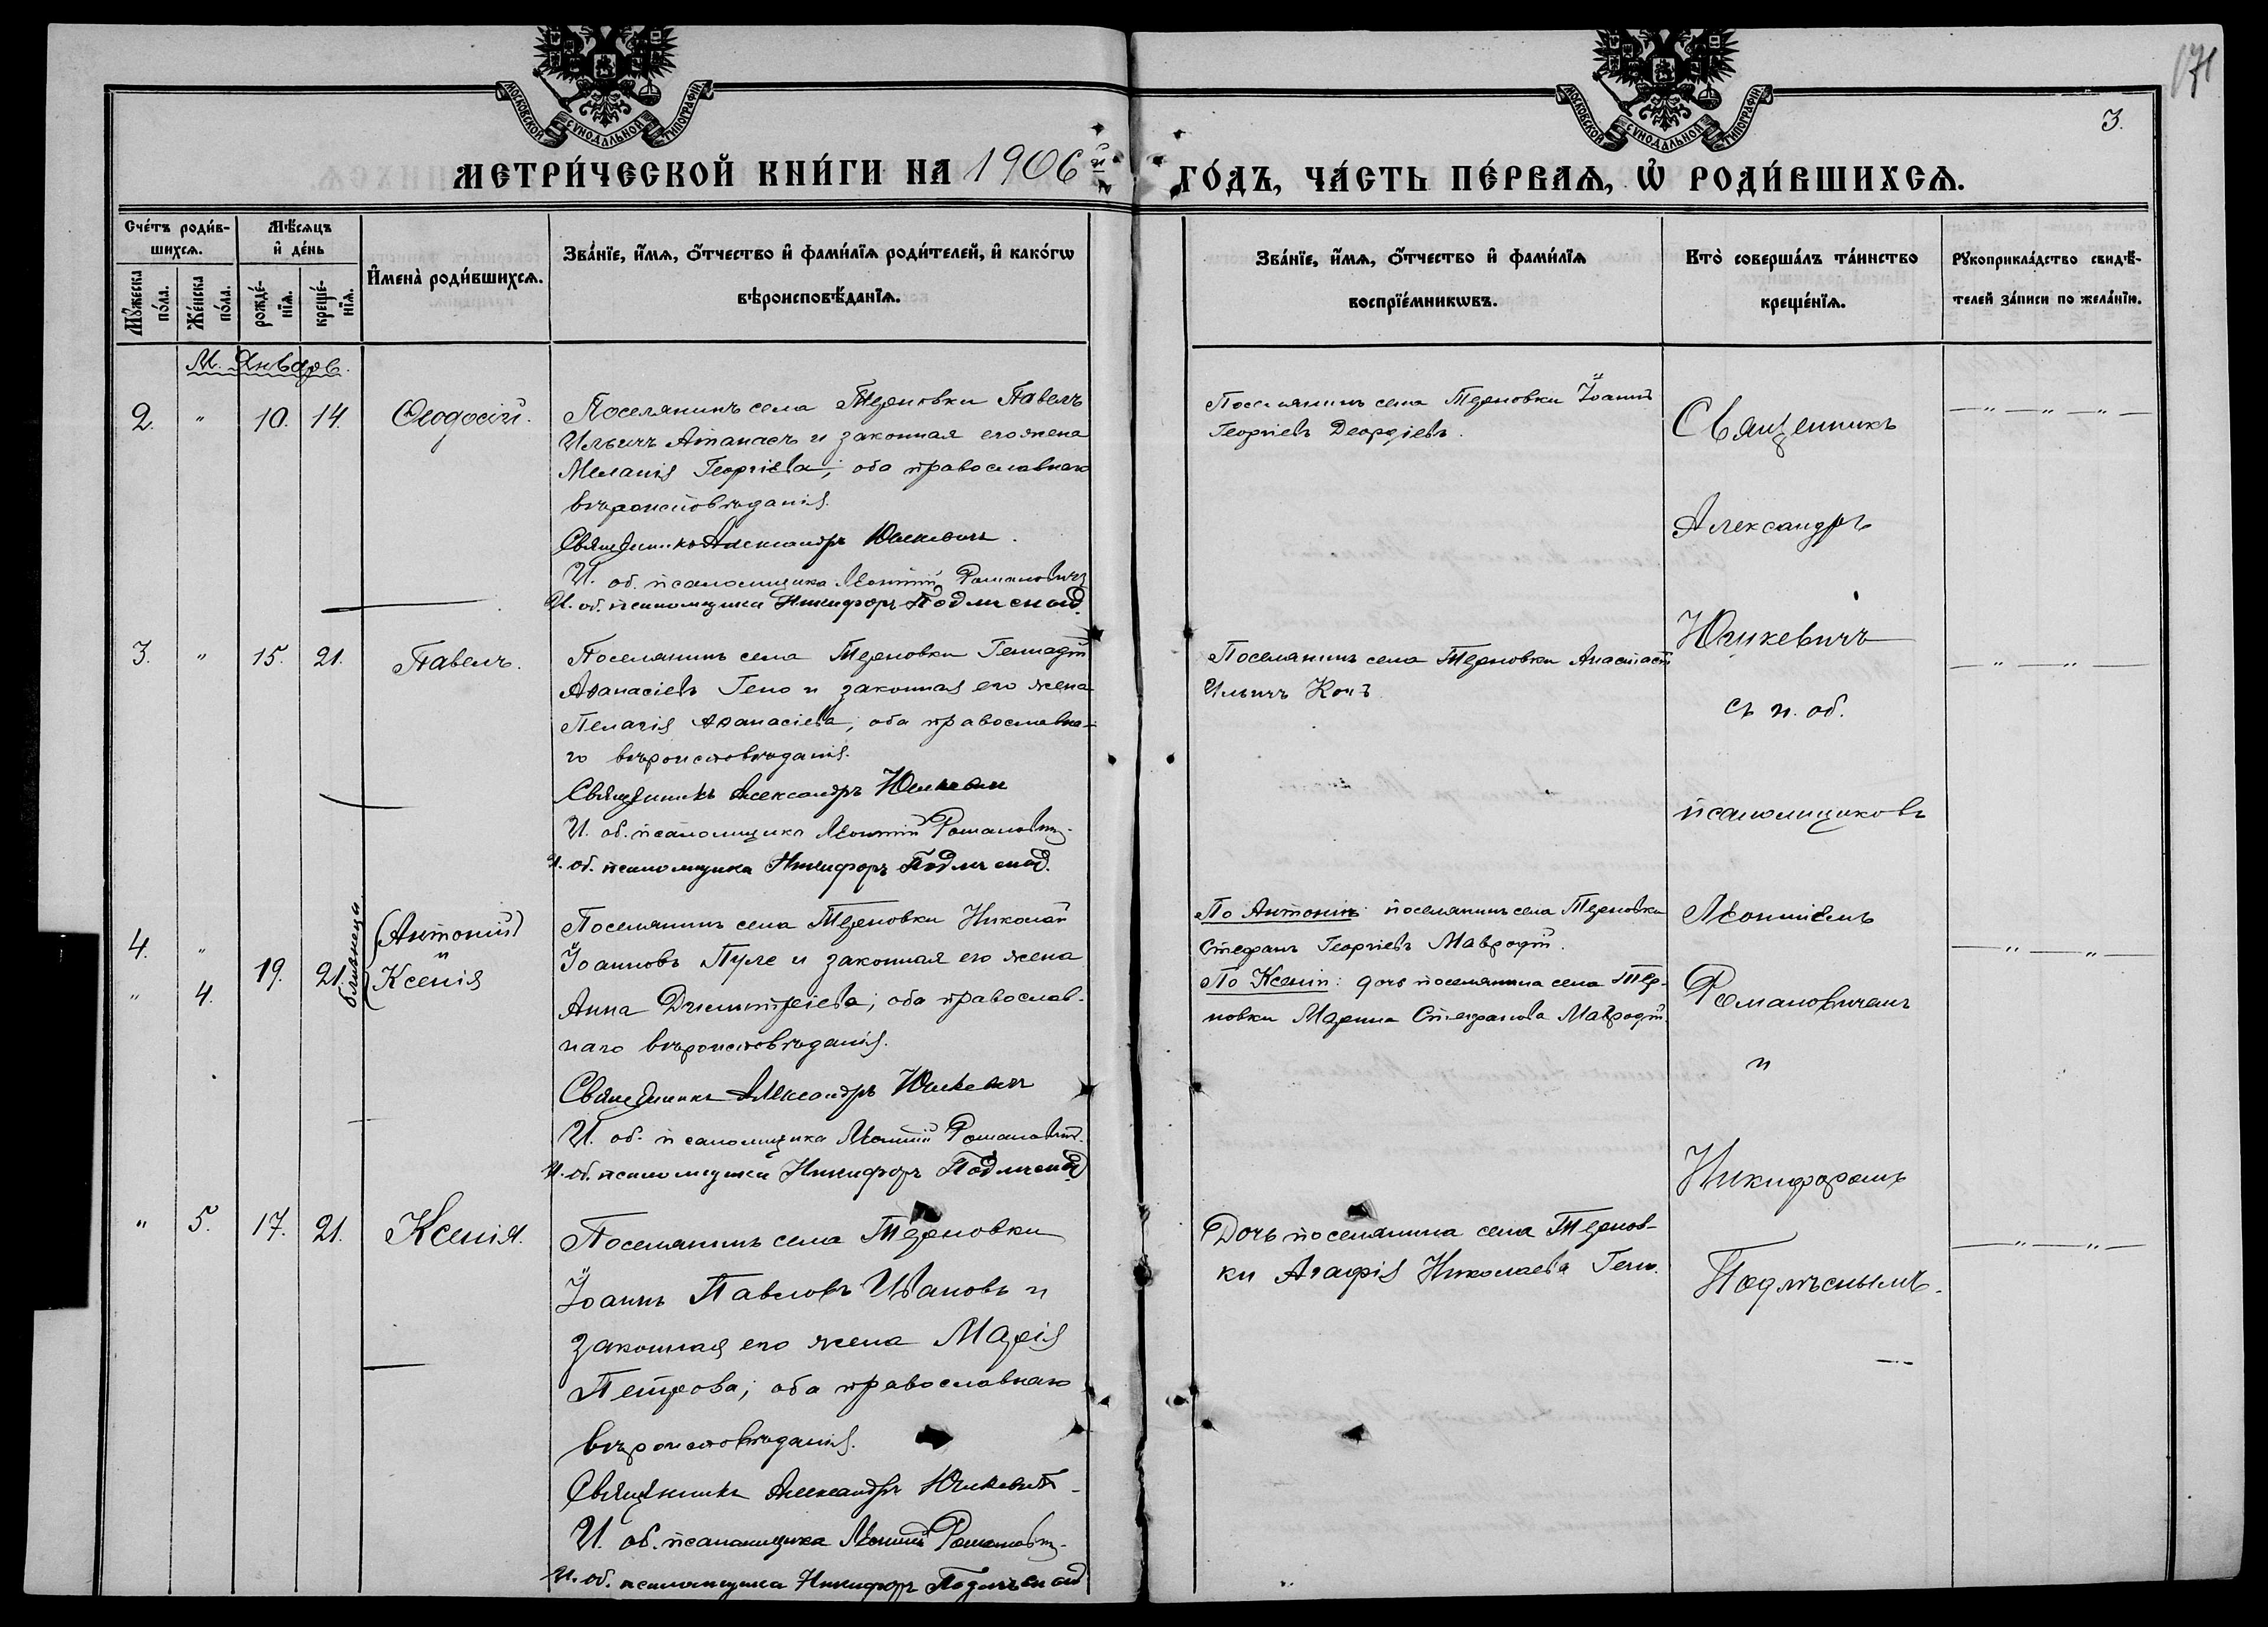 171
3.
МОСКОВСКОЙ СѴНОДАЛЬНОЙ ТИПОГРАФІИ
МОСКОВСКОЙ СѴНОДАЛЬНОЙ ТИПОГРАФІИ
МЕТРИ́ЧЕСКОЙ КНИ́ГИ НА 1906й
ГО́ДЪ, ЧА́СТЬ ПЕ́РВАѦ, Ѡ҆ РОДИ́ВШИХСѦ.
Сче́тъ роди́в-
шихсѧ.
Мꙋ́жеска
по́ла.
Же́нска
по́ла.
Мѣ́сѧцъ
и҆ де́нь
рожде́-
нїѧ.
креще́-
нїѧ.
И҆мена̀ роди́вшихсѧ.
Зва́нїе, и҆́мѧ, ѻ҆́тчество и҆ фами́лїѧ роди́телей, и҆ како́гѡ
вѣроисповѣ́данїѧ.
Зва́нїе, и҆́мѧ, ѻ҆́тчество и҆ фами́лїѧ
воспрїе́мникѡвъ.
Кто̀ соверша́лъ та́инство
креще́нїѧ.
Рꙋкоприкла́дство свидѣ́-
телей за́писи по жела́нїи.
М. Январь.
2. " 10. 14. Ѳеодосій.
Поселянинъ села Терновки Павелъ
Ильичъ Атанасъ и законная его жена
Меланія Георгіева; оба православнаго
вѣроисповѣданія.
Священникъ Александръ Юшкевичъ.
И. об. псаломщика Леонтій Романовичъ
И. об. псаломщика Никифоръ Подлѣсный.
Поселянинъ села Терновки Іоаннъ
Георгіевъ Деордіевъ.
3. " 15. 21. Павелъ.
Поселянинъ села Терновки Геннадій
Аѳанасіевъ Гено и законная его жена
Пелагія Аѳанасіева; оба православна-
го вѣроисповѣданія.
Священникъ Александръ Юшкевичъ
И. об. псаломщика Леонтій Романовичъ.
И. об. псаломщика Никифоръ Подлѣсный.
Поселянинъ села Терновки Анастасій
Ильичъ
4. "
" 4. 19. 21. близнецы
(Антоній)
и
Ксенія
Поселянинъ села Терновки Николай
Іоанновъ Пуле и законная его жена
Анна Димитріева; оба православ-
наго вѣроисповѣданія.
Священникъ Александръ Юшкевичъ
И. об. псаломщика Леонтій Романовичъ.
И. об. псаломщика Никифоръ Подлѣсный
По Антонію: поселянинъ села Терновки
Стефанъ Георгіевъ Мавродій.
По Ксеніи: дочь поселянина села Тер-
новки Марина Стефанова Мавродій.
" 5. 17. 21. Ксенія.
Поселянинъ села Терновки
Іоаннъ Павловъ Ивановъ и
законная его жена Марія
Петрова; оба православнаго
вѣроисповѣданія.
Священникъ Александръ Юшкевичъ
И. об. псаломщика Леонтій Романовичъ.
И. об. псаломщика Никифоръ Подлѣсный
Дочь поселянина села Тернов-
ки Агафія Николаева Гено.
Священникъ
Александръ
Юшкевичъ
съ и. об.
псаломщиковъ
Леонтіемъ
Романовичемъ
и
Никифоромъ
Подлѣснымъ.